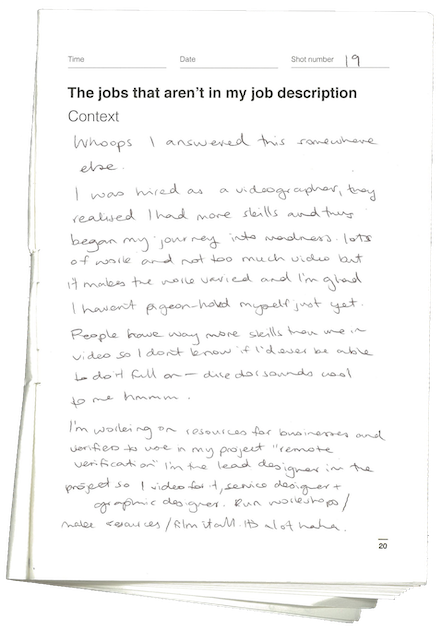 Time Date Shot number 19
The jobs that aren't in my job description
Context
Whoops I answered this somewhere
else.
I was hired as a videographer, they
realised I had more skills and thus
began my journey into madness. lots
of work and not too much video but
it makes the work varied and I'm glad
I haven't pigeon-held myself just yet.
People have way more skills than me in
video so I don't know if I'd ever be able
to do it full on — sounds cool
to me hmmm.
I'm working on resources for businesses and
verifiers to use in my project "remote
verification" I'm the lead designer in the
project so I video for it, service designer +
graphic designer. Run workshops /
make resources / film it all. It's a lot haha.
20